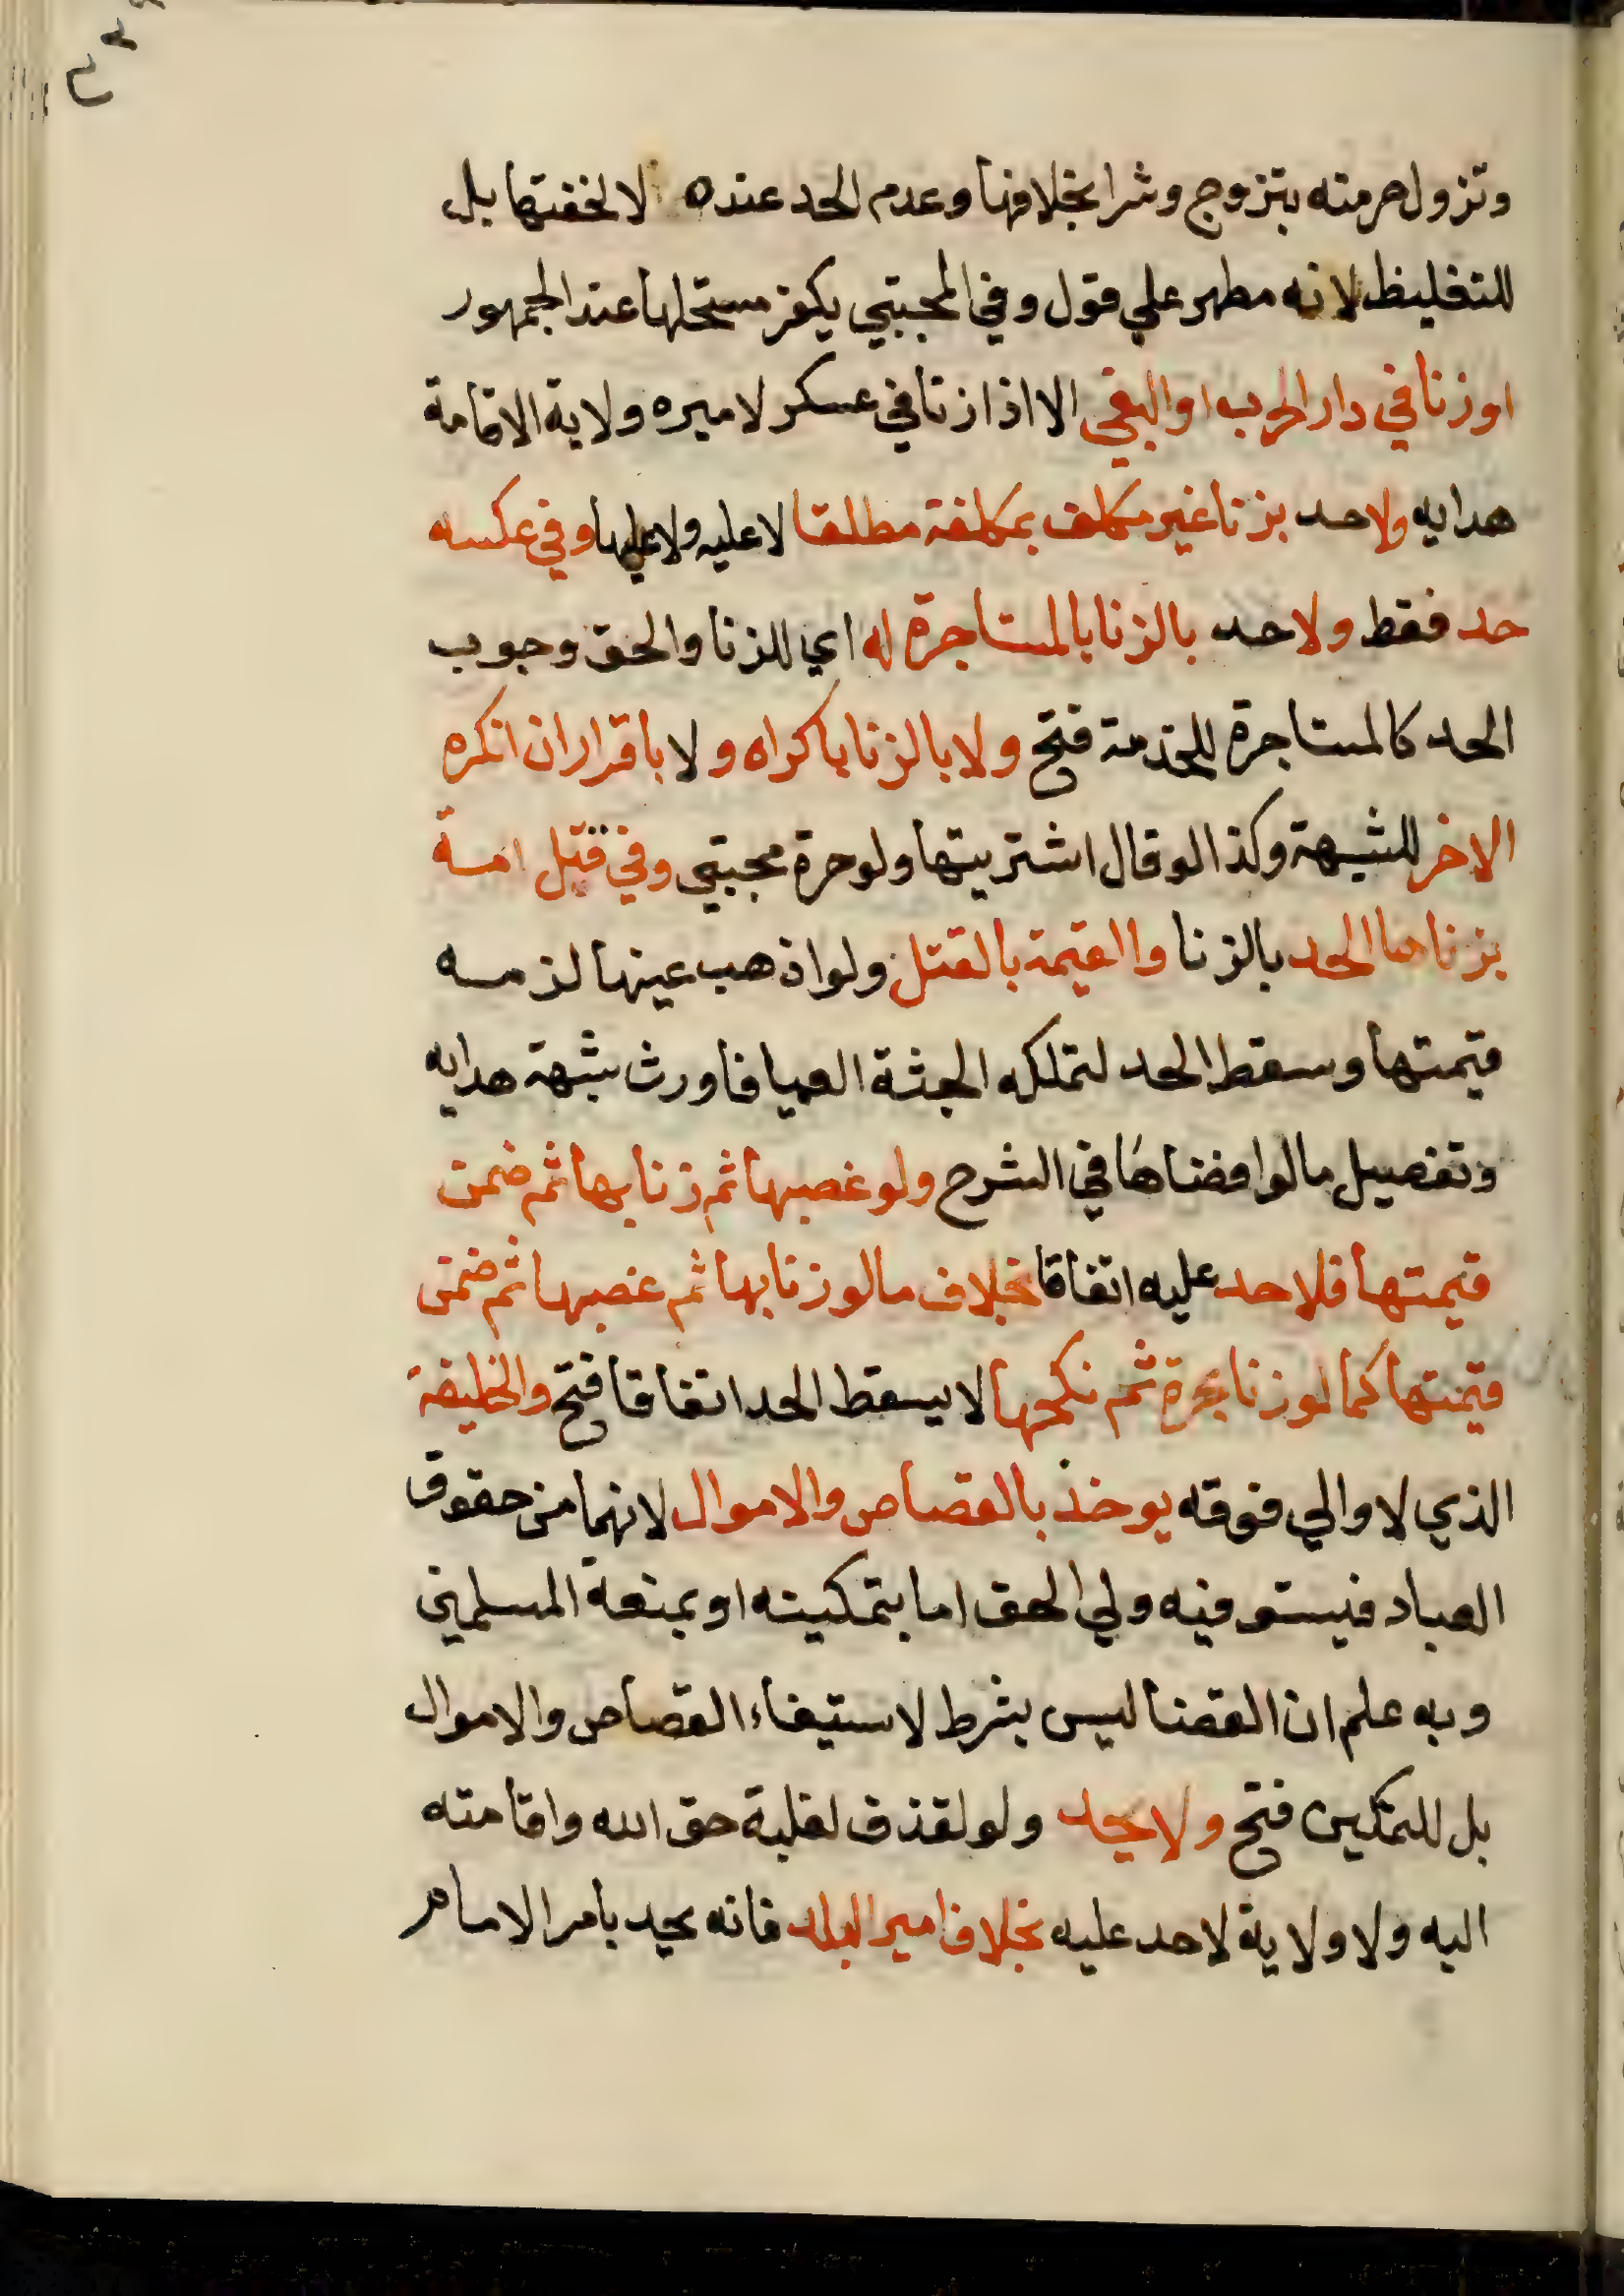 وتزول حرمته بتزوج وشرا بخلافها وعدم الحد عنده لا لخفتها بل
للتغليظ لانه مطهر علي قول وفي المجتبي يكفر مستحلها عند الجمهور
او زنا في دار الحرب او البغي الا اذا زنا في عسكر لاميره ولاية الاقامة
هدايه ولا حد بزنا غير مكلف بمكلفة مطلقا لا عليه ولا عليها وفي عكسه
حد فقط ولا حد بالزنا بالمستاجرة له اي للزنا والحق وجوب
الحد كالمستاجرة للخدمة فتح ولا بالزنا باكراه ولا باقرار ان انكره
الاخر للشبهة وكذا لو قال اشتريتها ولو حرة مجتبي وفي قتل امة
بزناها الحد بالزنا والقيمة بالقتل ولو اذهب عينها لزمه
قيمتها وسقط الحد لتملكه الجثة العميا فاورث شبهة هدايه
وتفصيل ما لو افضاها في الشرح ولو غصبها ثم زنا بها ثم ضمن
قيمتها فلا حد عليه اتفاقا بخلاف ما لو زنا بها ثم غصبها ثم ضمن
قيمتها كما لو زنا بحرة ثم نكحها لا يسقط الحد اتفاقا فتح والخليفة
الذي لا والي فوقه يوخذ بالقصاص والاموال لانهما من حقوق
العباد فيستوفيه ولي الحق اما بتمكينه او بمنعة المسلمين
وبه علم ان القضا ليس بشرط لاستيفاء القصاص والاموال
بل للتمكين فتح ولا يحد ولو لقذف لغلبة حق الله واقامته
اليه ولا ولاية لاحد عليه بخلاف امير البلد فانه يحد بامر الامام